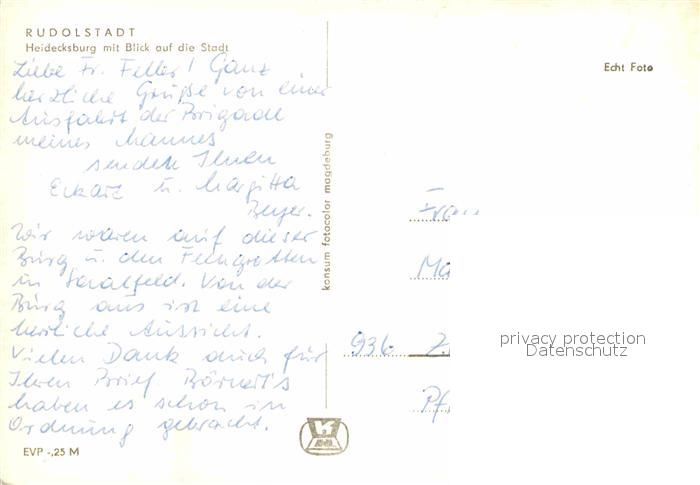 RUDOLSTADT
Heidecksburg mit Blick auf die Stadt
Echt Foto
Liebe Fr. Feller! Ganz
herzliche Grüße von einer
Ausfahrt der Brigade
meines Mannes
senden Ihnen
Eckart u. Margitta
Beyer.
Wir waren auf dieser
Burg u. den Feengrotten
in Saalfeld. Von der
Burg aus ist eine
herrliche Aussicht.
Vielen Dank auch für
Ihren Brief. Börnert's
haben es schon in
Ordnung gebracht.
EVP -,25 M
konsum fotocolor magdeburg
K
Frau
Ma
936 Z
Pf
privacy protection
Datenschutz